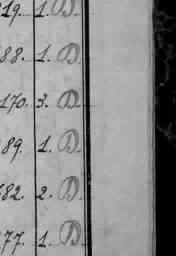 219. 1. D.
88. 1. D.
170. 3. D.
89. 1. D.
682. 2. D.
77. 1. D.